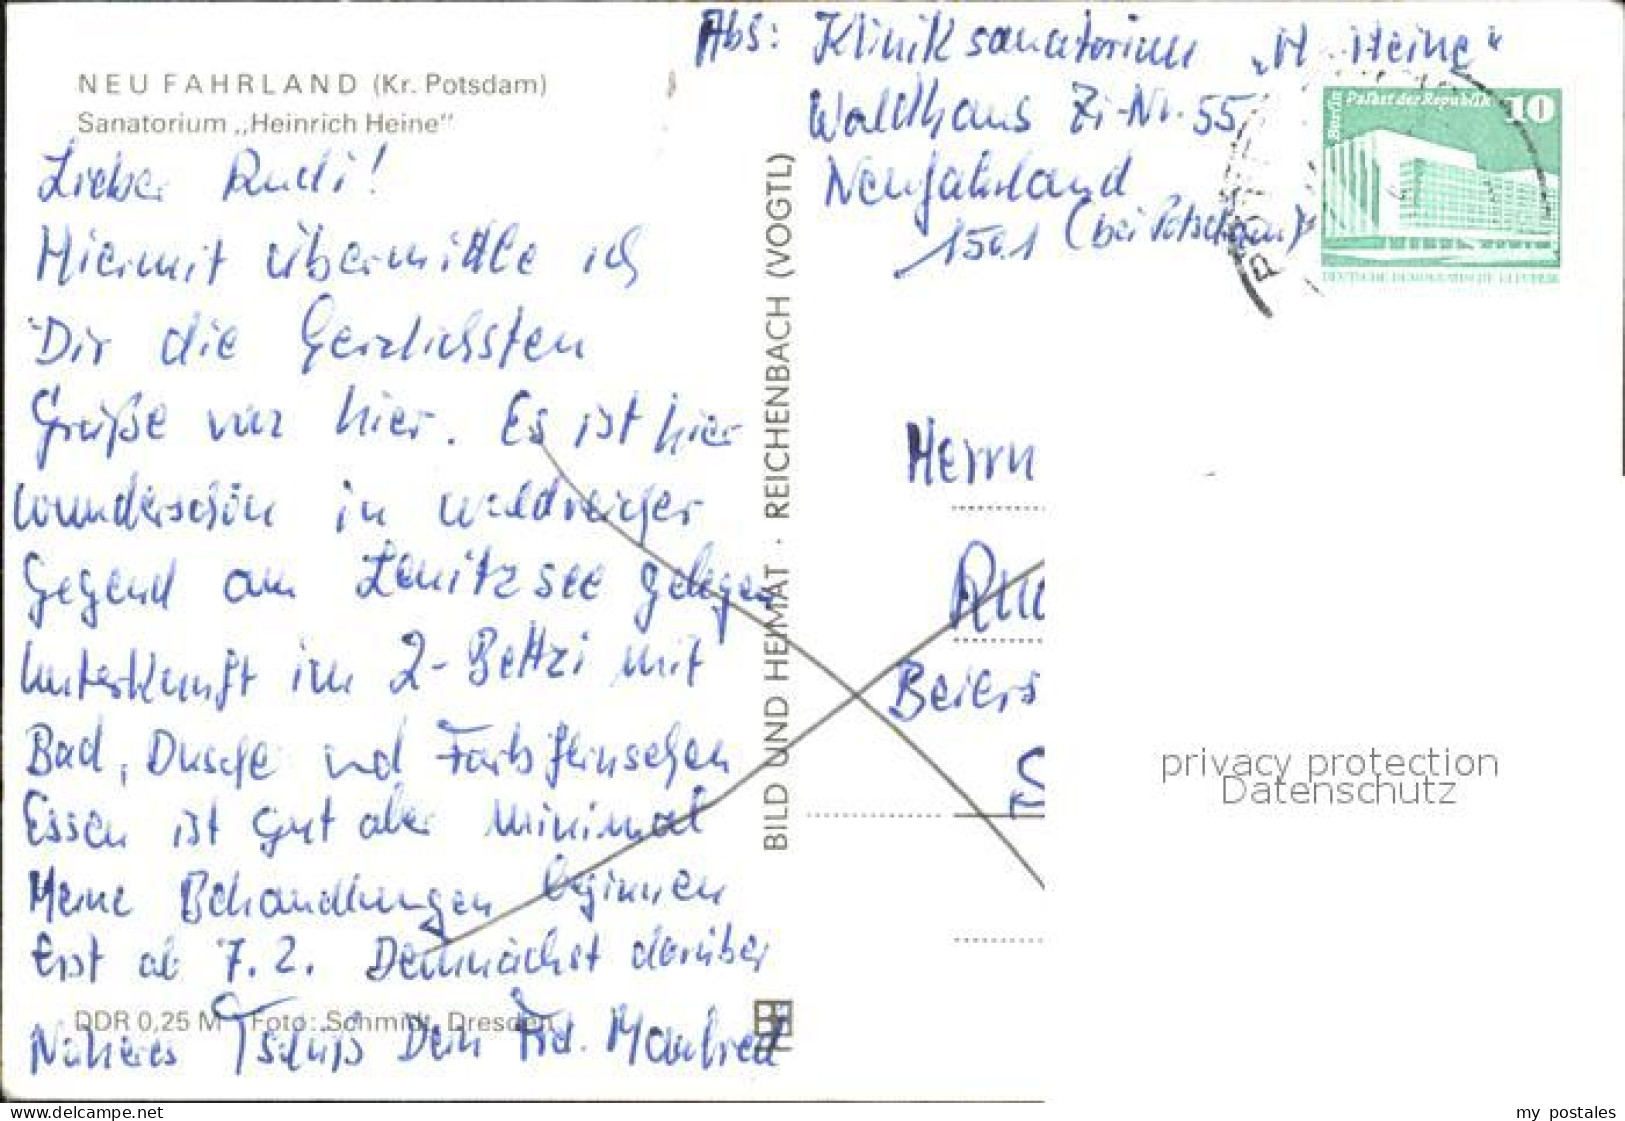 NEU FAHRLAND (Kr. Potsdam)
Sanatorium „Heinrich Heine“
Lieber Rudi!
Hiermit übermittle ich
Dir die herzlichsten
Grüße von hier. Es ist hier
wunderschön in waldreicher
Gegend am Lenitzsee gelegen
Unterkunft im 2-Bettzi mit
Bad, Dusche und Farbfernsehen
Essen ist gut aber minimal
Meine Behandlungen beginnen
Erst ab 7.2. Demnächst darüber
Näheres Tschüß Dein Frd. Manfred
DDR 0,25 M Foto: Schmidt, Dresden
BILD UND HEIMAT · REICHENBACH (VOGTL)
Abs: Kliniksanatorium „H. Heine“
Waldhaus Zi-Nr. 55
Neufahrland
1501 (bei Potsdam)
Berlin Palast der Republik 10
DEUTSCHE DEMOKRATISCHE REPUBLIK
POT
Herrn
Ru
Beiers
S
privacy protection
Datenschutz
www.delcampe.net
my_postales